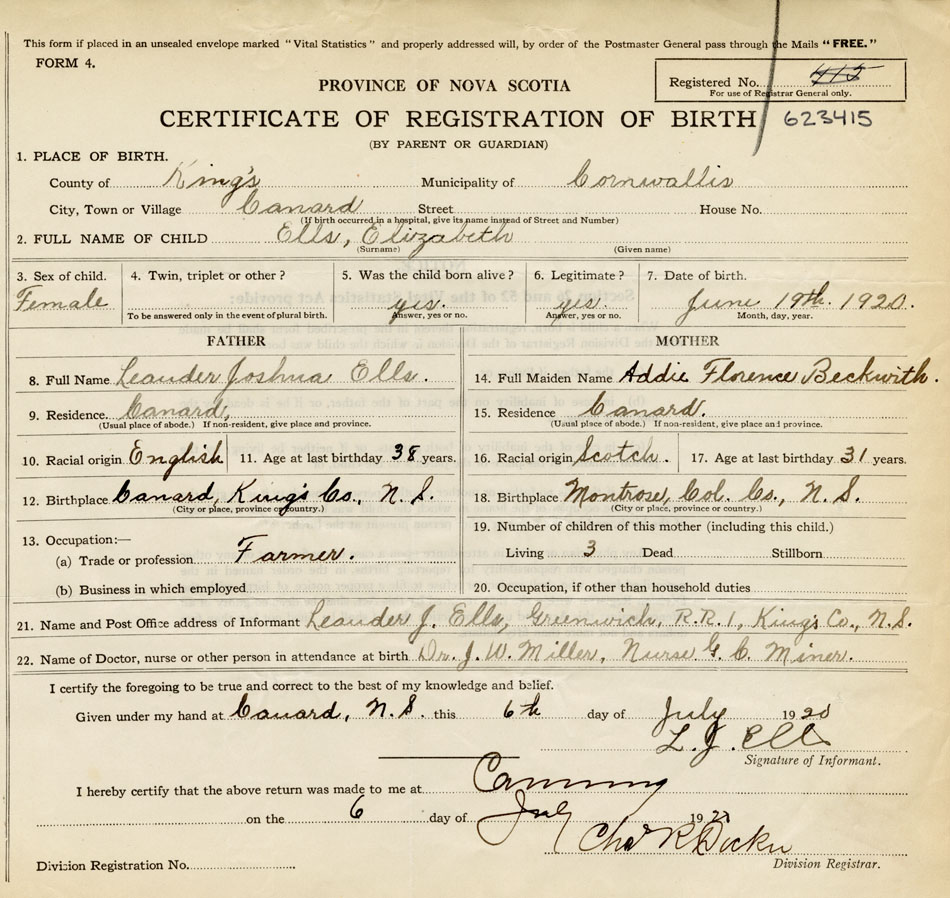 This form if placed in an unsealed envelope marked "Vital Statistics" and properly addressed will, by order of the Postmaster General pass through the Mails "FREE."
FORM 4.
Registered No. 415
For use of Registrar General only.
PROVINCE OF NOVA SCOTIA
CERTIFICATE OF REGISTRATION OF BIRTH 623415
(BY PARENT OR GUARDIAN)
1. PLACE OF BIRTH.
County of King's Municipality of Cornwallis
City, Town or Village Canard Street House No.
(If birth occurred in a hospital, give its name instead of Street and Number)
2. FULL NAME OF CHILD Ells, Elizabeth
(Surname) (Given name)
3. Sex of child. 4. Twin, triplet or other? 5. Was the child born alive? 6. Legitimate? 7. Date of birth.
Female yes. yes. June 19th. 1920.
To be answered only in the event of plural birth. Answer, yes or no. Answer, yes or no. Month, day, year.
FATHER MOTHER
8. Full Name Leander Joshua Ells. 14. Full Maiden Name Addie Florence Beckwith.
9. Residence. Canard, 15. Residence Canard.
(Usual place of abode.) If non-resident, give place and province. (Usual place of abode.) If non-resident, give place and province.
10. Racial origin English 11. Age at last birthday 38 years. 16. Racial origin Scotch. 17. Age at last birthday 31 years.
12. Birthplace Canard, King's Co., N.S. 18. Birthplace Montrose, Col. Co., N.S.
(City or place, province or country.) (City or place, province or country.)
13. Occupation:— 19. Number of children of this mother (including this child.)
(a) Trade or profession Farmer. Living 3 Dead Stillborn
(b) Business in which employed 20. Occupation, if other than household duties
21. Name and Post Office address of Informant Leander J. Ells, Greenwich, R.R.1, King's Co., N.S.
22. Name of Doctor, nurse or other person in attendance at birth Dr. J. W. Miller, Nurse G. C. Miner.
I certify the foregoing to be true and correct to the best of my knowledge and belief.
Given under my hand at Canard, N.S. this 6th day of July 1920
L. J. Ells
Signature of Informant.
I hereby certify that the above return was made to me at Canning
on the 6 day of July 19
Chas R
Division Registration No. Division Registrar.